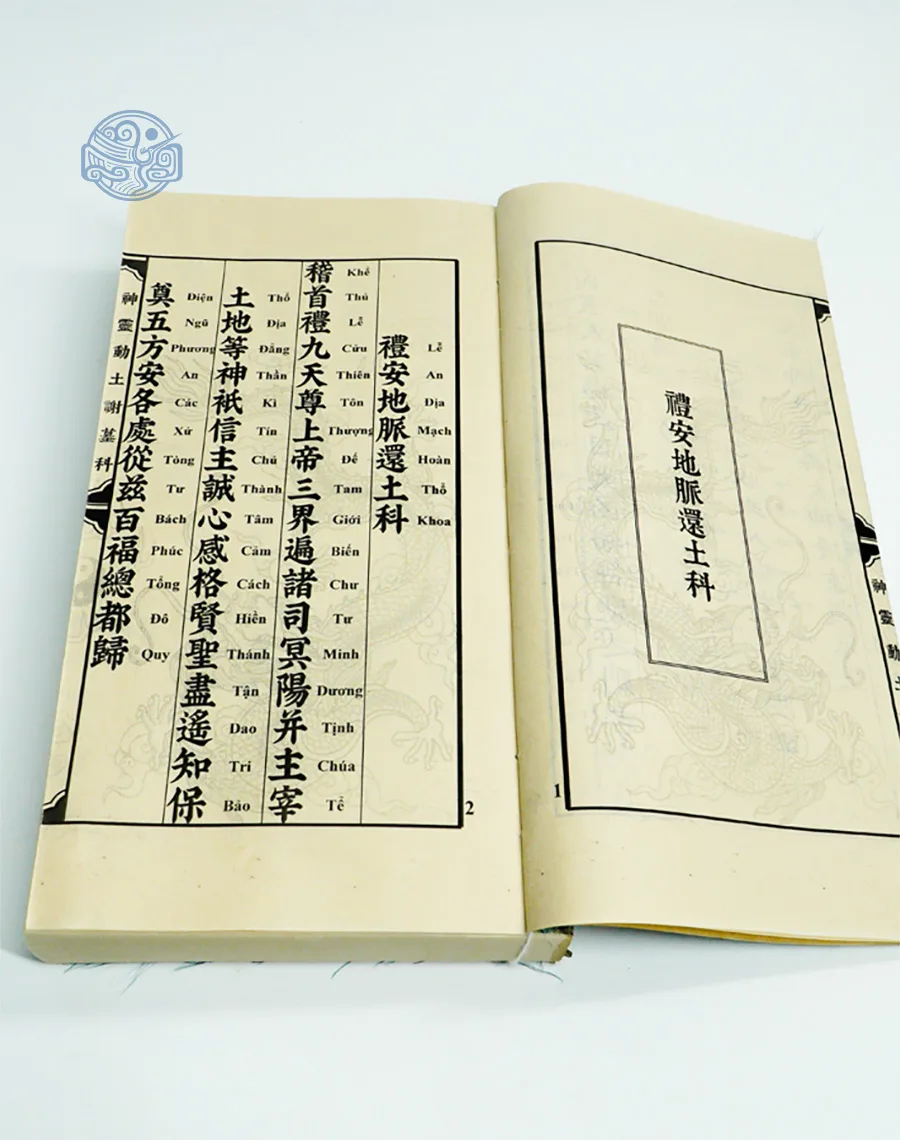 神靈動土
禮安地脈還土科
1
禮安地脈還土科
Lễ An Địa Mạch Hoàn Thổ Khoa
稽首禮九天尊上帝三界遍諸司冥陽并主宰
Khể Thủ Lễ Cửu Thiên Tôn Thượng Đế Tam Giới Biến Chư Tư Minh Dương Tịnh Chúa Tể
土地等神祇信主誠心感格賢聖盡遙知保
Thổ Địa Đẳng Thần Kì Tín Chủ Thành Tâm Cảm Cách Hiền Thánh Tận Dao Tri Bảo
奠五方安各處從茲百福總都歸
Điện Ngũ Phương An Các Xứ Tòng Tư Bách Phúc Tổng Đô Quy
神靈動土謝墓科
2